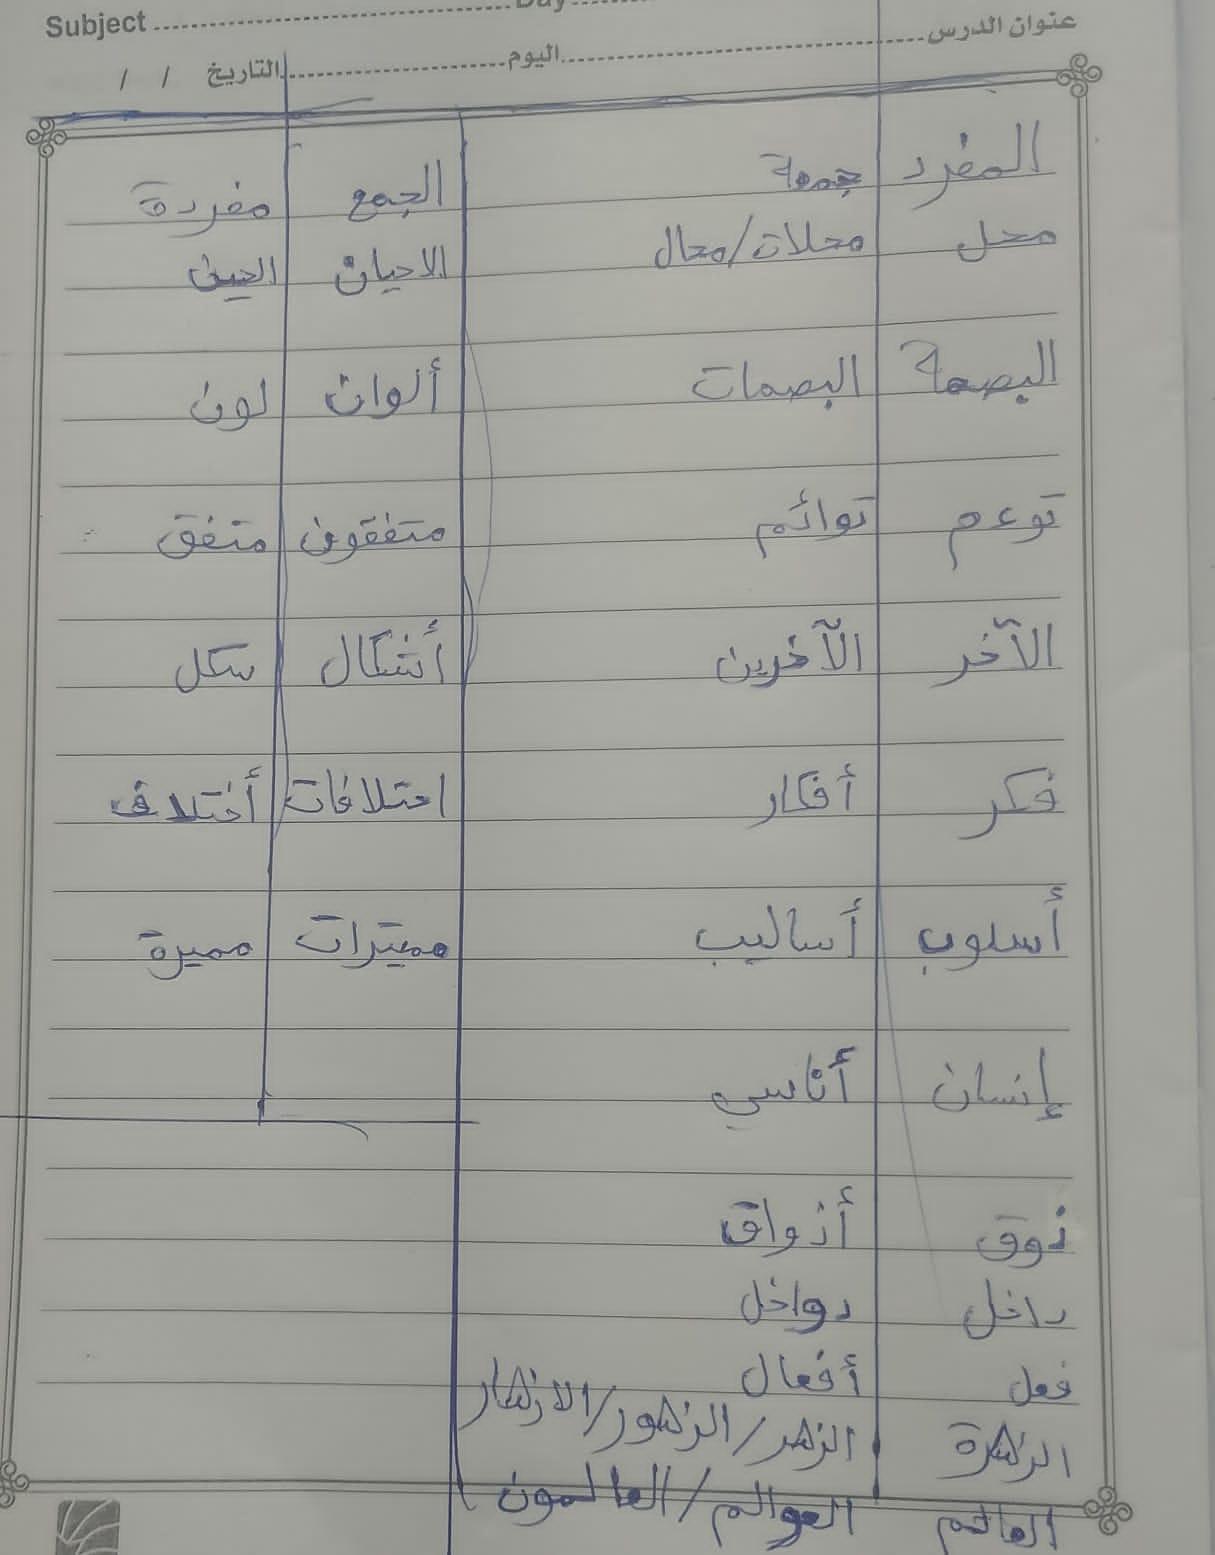 Subject
عنوان الدرس اليوم التاريخ / /
المفرد جمعة الجمع مفردة
محل محلات/محال الاحيان الحين
البصمة البصمات ألوان لون
توءم توائم متفقون متفق
الآخر الآخرين أشكال شكل
فكر أفكار اختلافات أختلاف
أسلوب أساليب مميزات مميزة
إنسان أناسي
ذوق أذواق
داخل دواخل
فعل أفعال
الزهرة الزهر/الزهور/الازهار
العالم العوالم/العالمون